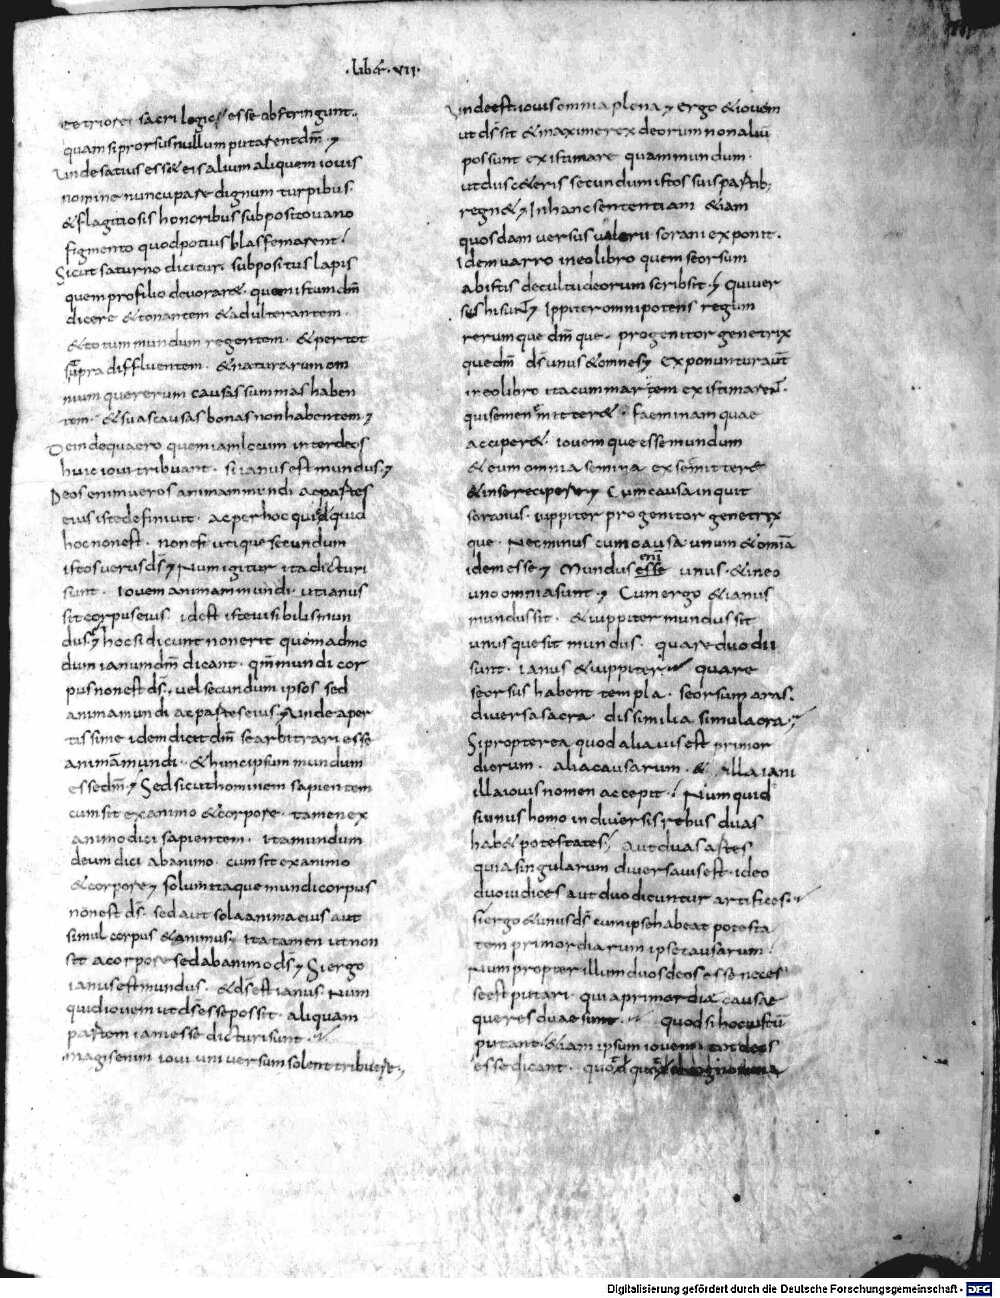 ·liber·vii·
et triores sacrilogic esse obstringunt·
quam si prorsus nullum putarent dm̄
Unde satius esset eis alium aliquem iovis
nomine nuncupare dignum turpibus
& flagitiosis honoribus subposito vano
figmento quod potius blasfemarent
Sicut saturno dicitur· subpositus lapis
quem pro filio devorar& quam istum dm̄
dicere & tonantem & adulterantem
& totum mundum regentem· & per tot
supra diffluentem· & naturarum om
nium quererum causas summas haben
tem· & suas causas bonas non habentem
Deinde quaero quem iam locum inter deos
huic iovi tribuant· si ianus est mundus
Deos enim veros animam mundi ac partes
eius iste definiuit· ac per hoc quidquid
hoc non est· non est utique secundum
istos verus ds̄ Num igitur ita dicturi
sunt· Iovem animam mundi· ut ianus
sit corpus eius· id est iste visibilis mun
dus hoc si dicunt non erit quem admo
dum ianum dm̄ dicant· qm̄ mundi cor
pus non est ds̄· vel secundum ipsos sed
anima mundi ac partes eius Unde aper
tissime idem dicit dm̄ se arbitrari esse
animā mundi· & hunc ipsum mundum
esse dm̄ Sed sicut hominem sapientem
cum sit ex animo & corpore· tamen ex
animo dici sapientem· ita mundum
deum dici ab animo· cum sit ex animo
& corpore solum itaque mundi corpus
non est ds̄· sed aut sola anima eius aut
simul corpus & animus· ita tamen ut non
sit a corpore sed ab animo ds̄ Si ergo
ianus est mundus· & ds̄ est ianus· Num
quid iovem ut ds̄ esse possit· aliquam
partem iani esse dicturi sunt·
magis enim iovi universum solent tribuere·
Unde est· iovis omnia plena Ergo & iovem
ut ds̄ sit & maxime rex deorum non aliū
possunt existimare quam mundum·
ut dus c&eris secundum istos suis partib;
regn& In hanc sententiam &iam
quosdam versus valerii sorani exponit·
Idem varro in eo libro quem seorsum
ab istis de cultu deorum scribsit· Qui ver
sus hi sunt Ippiter omnipotens regum
rerumque dm̄que· progenitor genetrix
que dm̄ ds̄ unus & omnes Exponuntur aut̄
in eo libro ita cum marem existimarent
qui semen mitter& faeminam quae
acciper&· iovemque esse mundum
& eum omnia semina ex se mittere
& in se recipere Cum causa inquit
soranus· iuppiter progenitor genetrix
que· Nec minus cum causa unum & omīa
idem esse Mundus enī
esse unus· & in eo
uno omnia sunt· Cum ergo & ianus
mundus sit· & iuppiter mundus sit
unusque sit mundus· quare duo dii
sunt· ianus & iuppiter quare
seorsus habent templa· seorsum aras·
diversa sacra· dissimilia simulacra·
Si propterea quod alia vis est primor
diorum· alia causarum· & illa iani
illa iovis nomen accepit· Numquid
si unus homo in diversis rebus duas
hab& potestates Aut duas artes
quia singularum diversa vis est· ideo
duo iudices aut duo dicuntur artifices·
si ergo & unus ds̄ cum ipse habeat potesta
tem primordiarum ipse causarum
Num propter illum duos deos esse neces
se est putari· quia primordia causae
queres duae sunt· quod si hoc iustū
putant· &iam ipsum iovem tot deos
esse dicant· quod
Digitalisierung gefördert durch die Deutsche Forschungsgemeinschaft - DFG